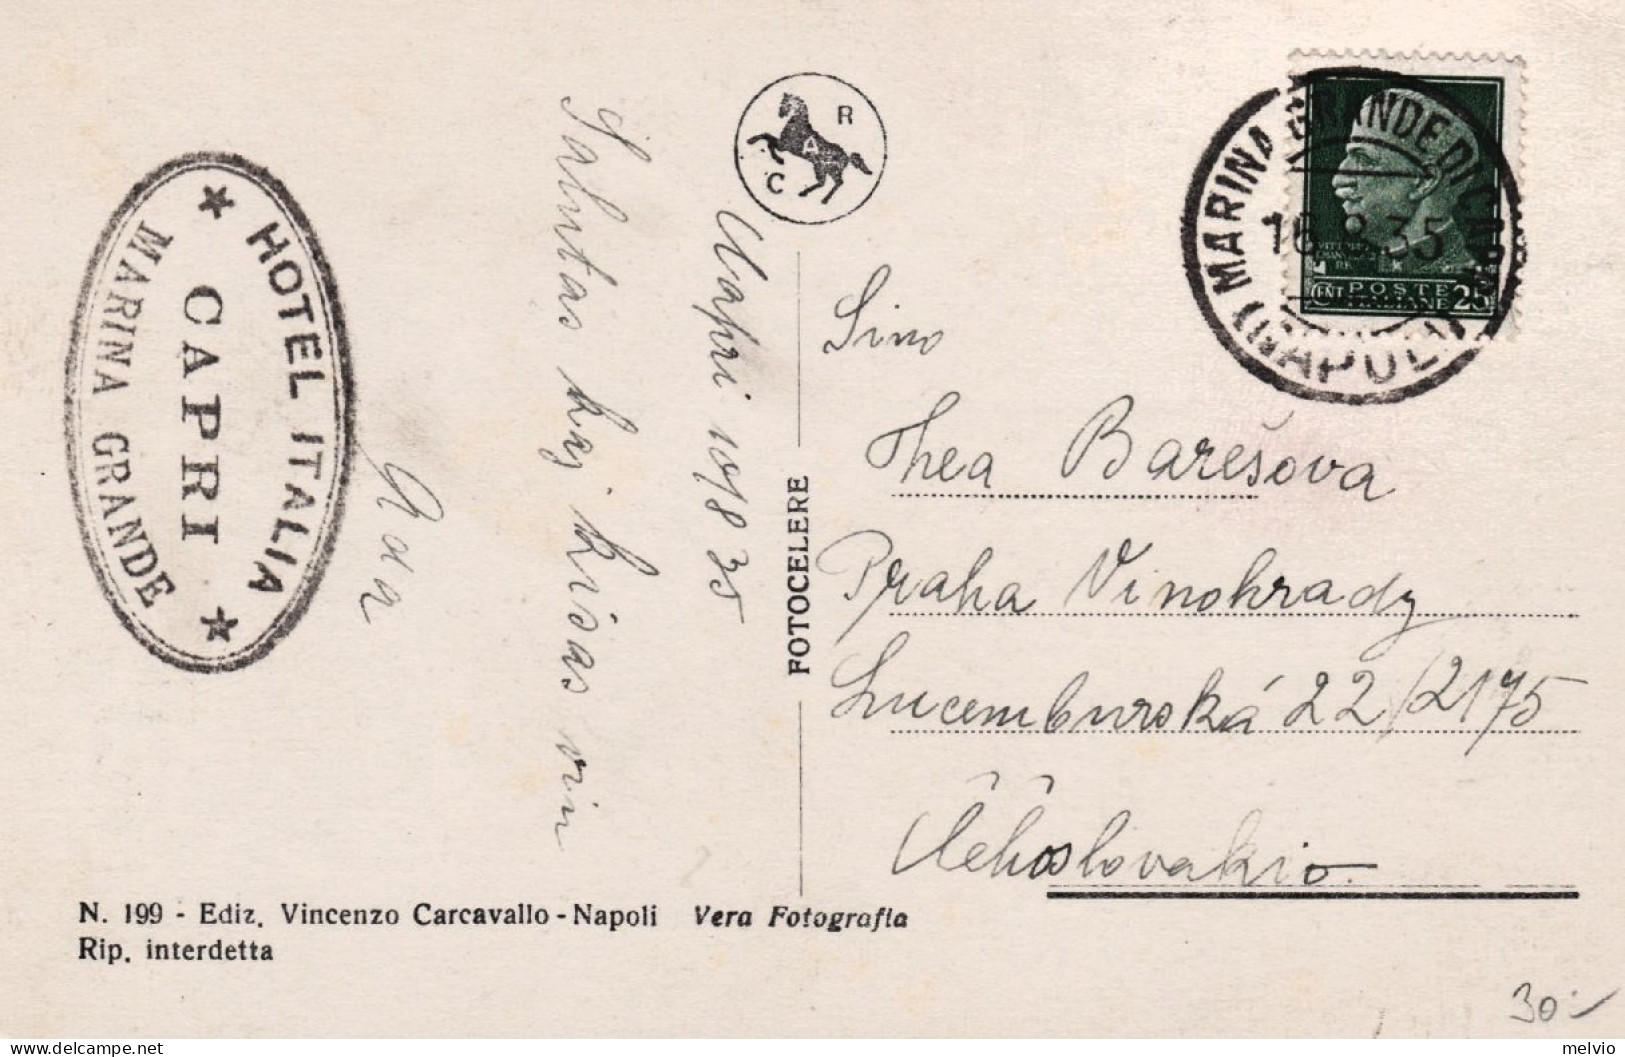 HOTEL ITALIA
CAPRI
MARINA GRANDE
R
A
C
Capri 10/8 35
Salutas kaj kisas vin
FOTOCELERE
MARINA GRANDE DI CAPRI
16.8.35
(NAPOLI)
POSTE
ITALIANE
CENT 25
Sino
Thea Barešova
Praha Vinohrady
Lucemburská 22/2175
Ĉeĥoslovakio.
N. 199 - Ediz. Vincenzo Carcavallo - Napoli Vera Fotografia
Rip. interdetta
30.-
melvio